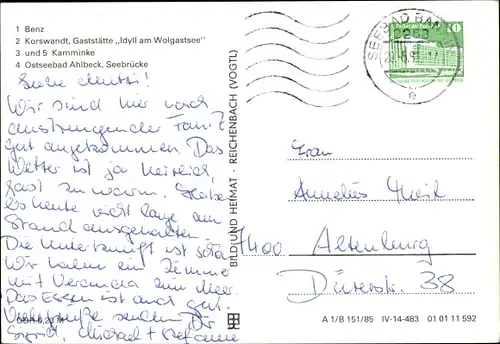 1 Benz
2 Korswandt, Gaststätte „Idyll am Wolgastsee"
3 und 5 Kamminke
4 Ostseebad Ahlbeck, Seebrücke
Liebe
Wir sind hier nach
anstrengender Fahrt
gut angekommen. Das
Wetter ist ja herrlich,
fast zu warm. Haben
es heute nicht lange am
Strand ausgehalten.
Die Unterkunft ist
Wir haben ein Zimmer
mit Veranda zum Meer
Das Essen ist auch gut.
Viele Grüße senden Dir
Sigrid, Michael +
BILD UND HEIMAT · REICHENBACH (VOGTL)
SEEBAD
2252
e
Frau
Annelies
7400 Altenburg
Dürerstr. 38
A 1/B 151/85 IV-14-483 01 01 11 592